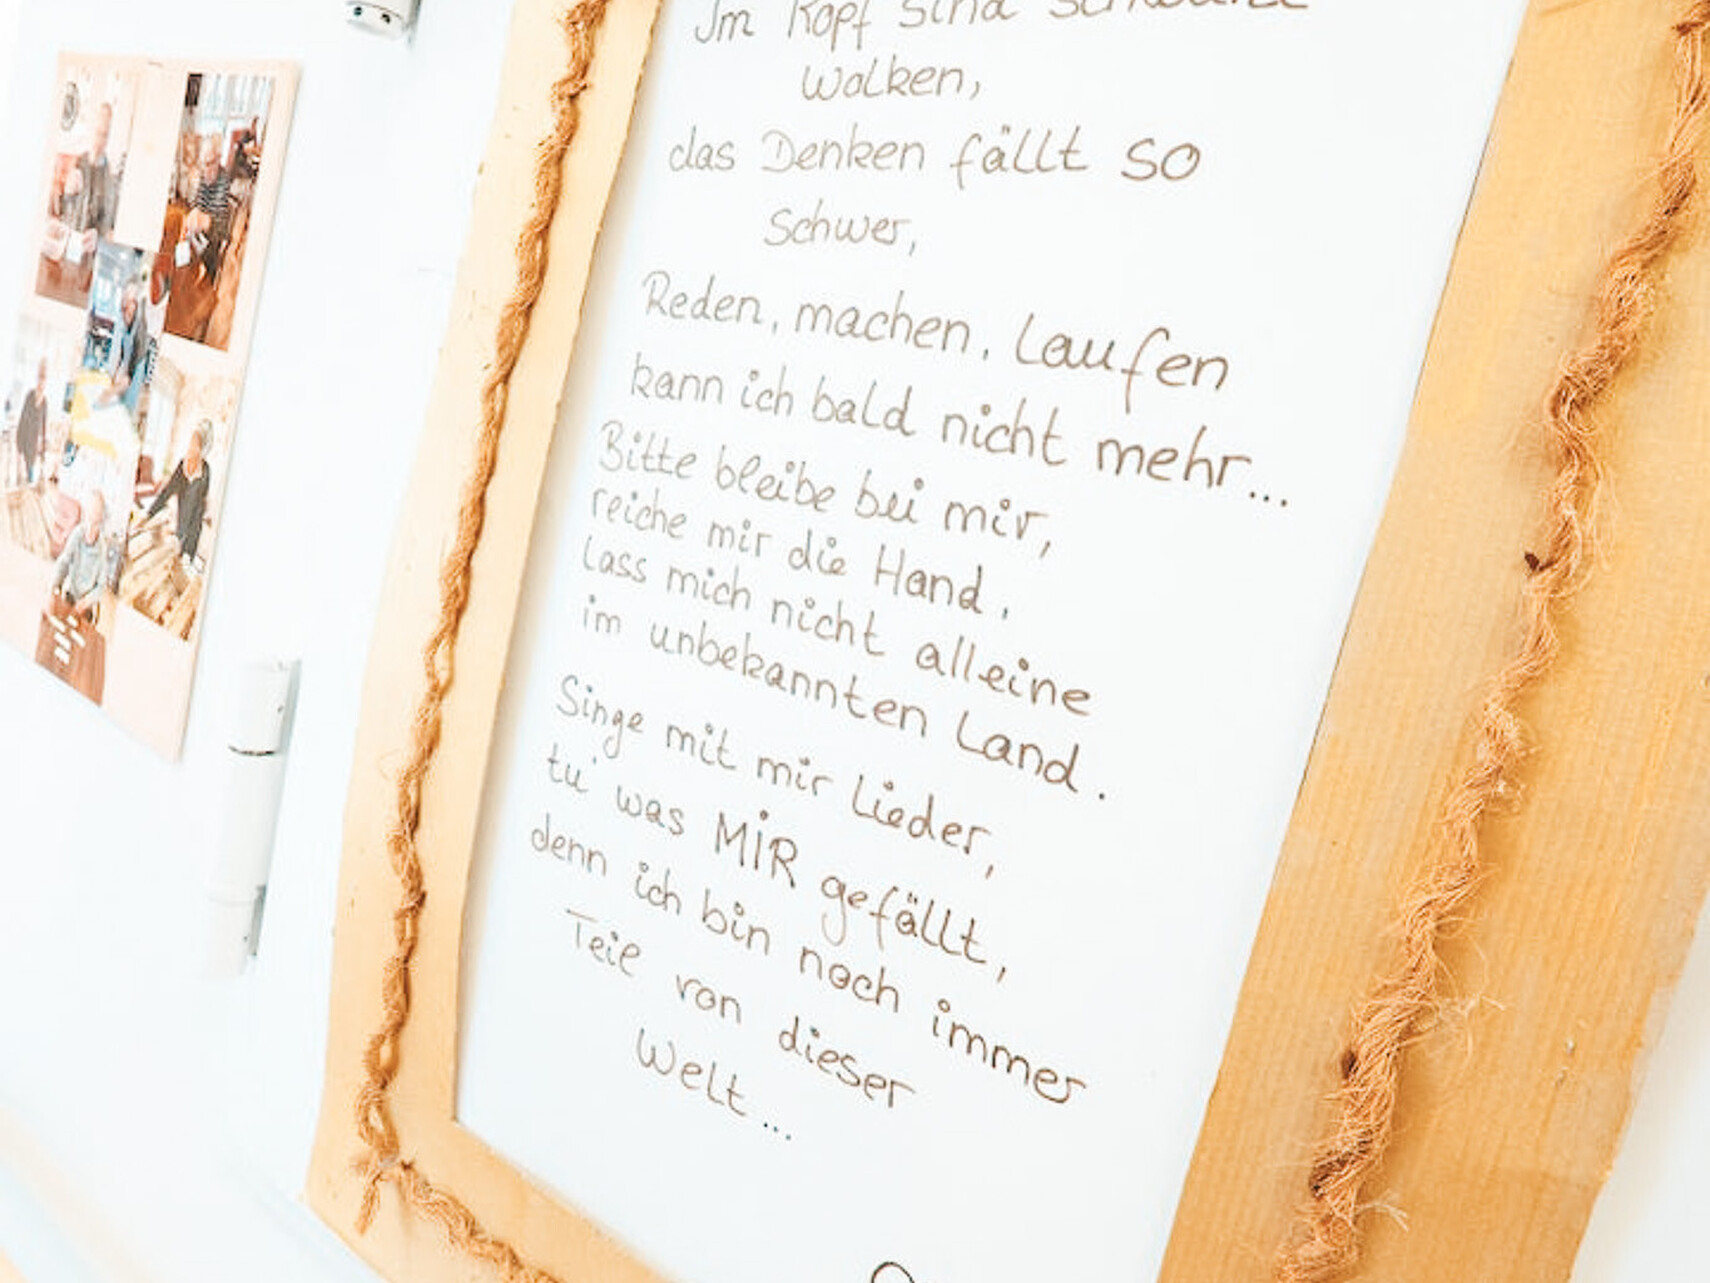 Im Kopf sind schwarze
Wolken,
das Denken fällt so
schwer,
Reden, machen, laufen
kann ich bald nicht mehr...
Bitte bleibe bei mir,
reiche mir die Hand,
lass mich nicht alleine
im unbekannten Land.
Singe mit mir Lieder,
tu' was MIR gefällt,
denn ich bin noch immer
Teil von dieser
Welt...